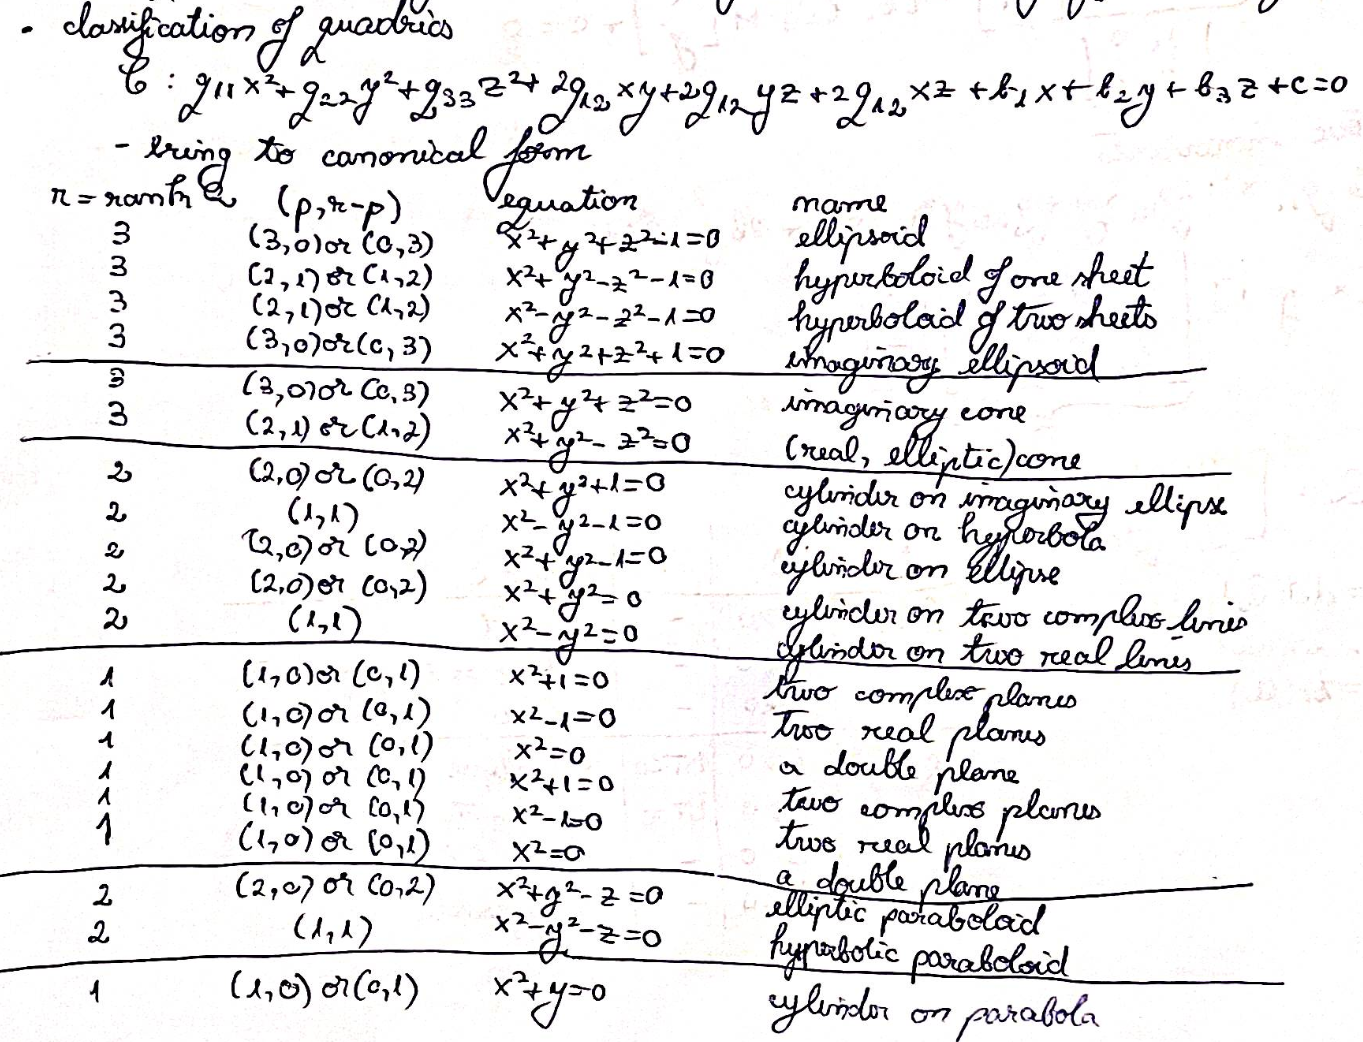 • classification of quadrics
C : g₁₁x²+g₂₂y²+g₃₃z²+2g₁₂xy+2g₁₂yz+2g₁₂xz+b₁x+b₂y+b₃z+c=0
- bring to canonical form
r = rank Q (p, r-p) equation name
3 (3,0) or (0,3) x²+y²+z²-1=0 ellipsoid
3 (2,1) or (1,2) x²+y²-z²-1=0 hyperboloid of one sheet
3 (2,1) or (1,2) x²-y²-z²-1=0 hyperboloid of two sheets
3 (3,0) or (0,3) x²+y²+z²+1=0 imaginary ellipsoid
3 (3,0) or (0,3) x²+y²+z²=0 imaginary cone
3 (2,1) or (1,2) x²+y²-z²=0 (real, elliptic) cone
2 (2,0) or (0,2) x²+y²+1=0 cylinder on imaginary ellipse
2 (1,1) x²-y²-1=0 cylinder on hyperbola
2 (2,0) or (0,2) x²+y²-1=0 cylinder on ellipse
2 (2,0) or (0,2) x²+y²=0 cylinder on two complex lines
2 (1,1) x²-y²=0 cylinder on two real lines
1 (1,0) or (0,1) x²+1=0 two complex planes
1 (1,0) or (0,1) x²-1=0 two real planes
1 (1,0) or (0,1) x²=0 a double plane
1 (1,0) or (0,1) x²+1=0 two complex planes
1 (1,0) or (0,1) x²-1=0 two real planes
1 (1,0) or (0,1) x²=0 a double plane
2 (2,0) or (0,2) x²+y²-z=0 elliptic paraboloid
2 (1,1) x²-y²-z=0 hyperbolic paraboloid
1 (1,0) or (0,1) x²+y=0 cylinder on parabola